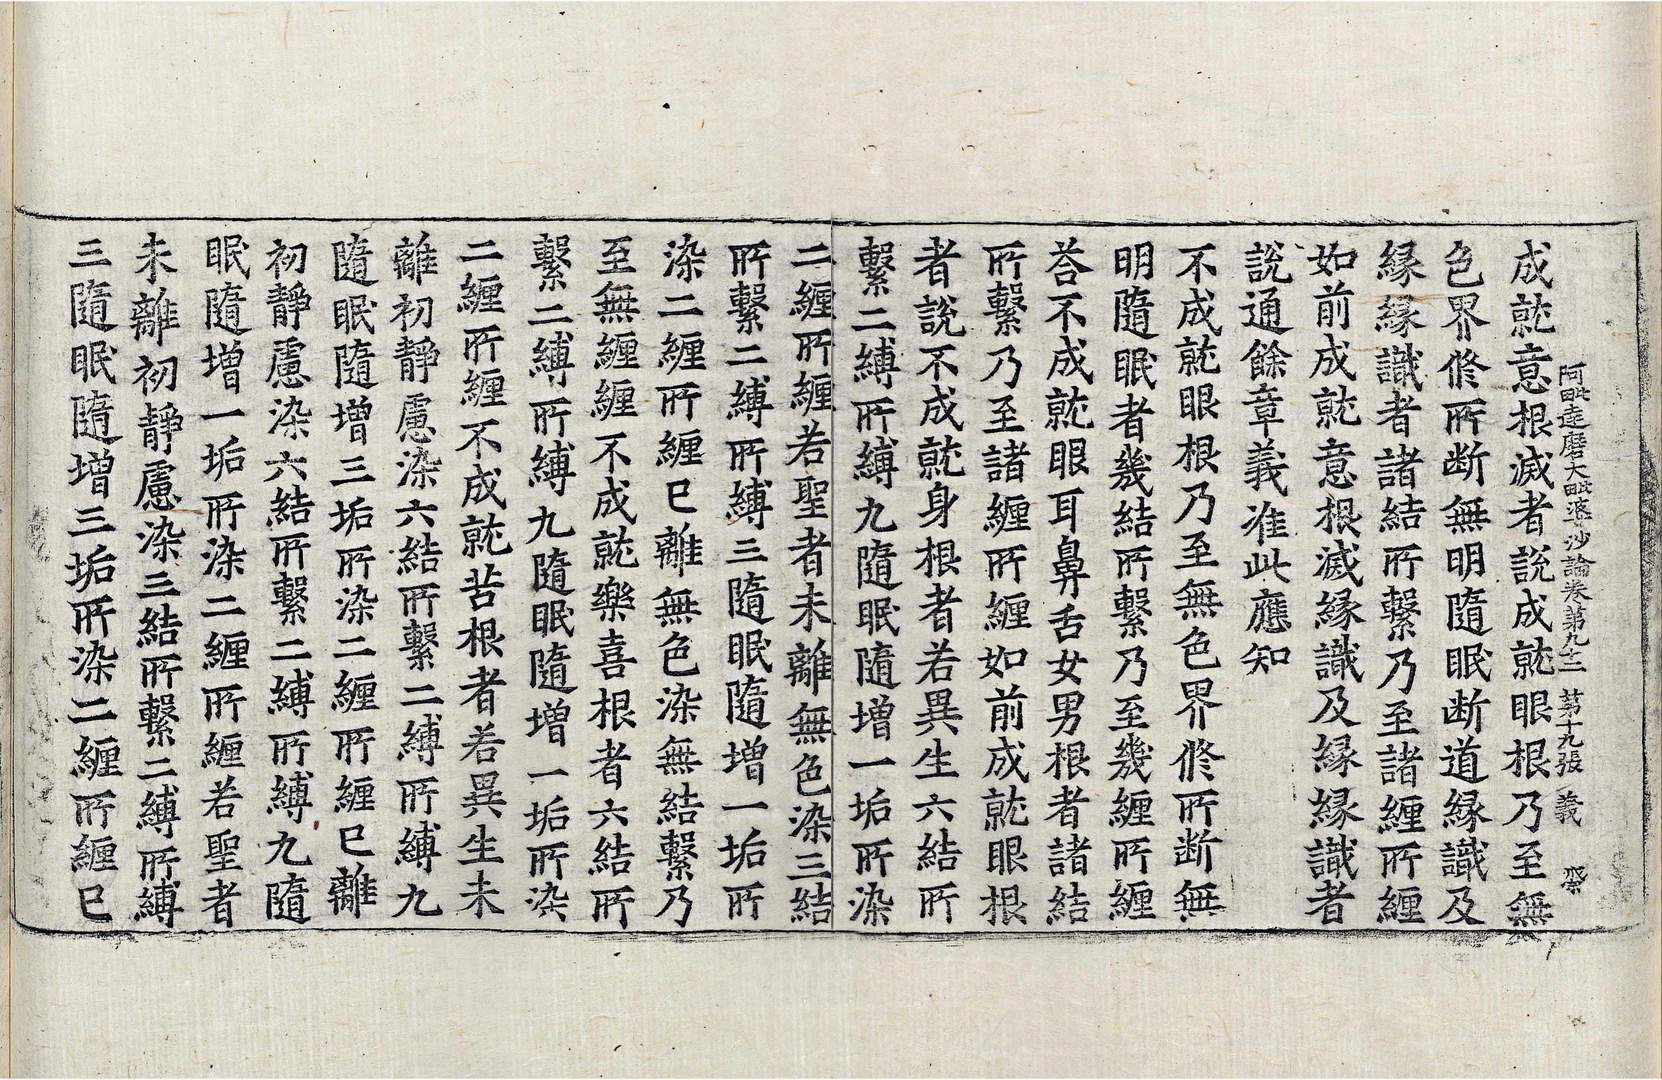 阿毗達磨大毗婆沙論卷第九十二 第十九張 義
成就意根滅者說成就眼根乃至無
色界修所斷無明隨眠斷道緣識及
緣緣識者諸結所繫乃至諸纏所纏
如前成就意根滅緣識及緣緣識者
說通餘章義准此應知
不成就眼根乃至無色界修所斷無
明隨眠者幾結所繫乃至幾纏所纏
荅不成就眼耳鼻舌女男根者諸結
所繫乃至諸纏所纏如前成就眼根
者說不成就身根者若異生六結所
繫二縛所縛九隨眠隨增一垢所染
二纏所纏若聖者未離無色染三結
所繫二縛所縛三隨眠隨增一垢所
染二纏所纏已離無色染無結繫乃
至無纏纏不成就樂喜根者六結所
繫二縛所縛九隨眠隨增一垢所染
二纏所纏不成就苦根者若異生未
離初靜慮染六結所繫二縛所縛九
隨眠隨增三垢所染二纏所纏已離
初靜慮染六結所繫二縛所縛九隨
眠隨增一垢所染二纏所纏若聖者
未離初靜慮染三結所繫二縛所縛
三隨眠隨增三垢所染二纏所纏已